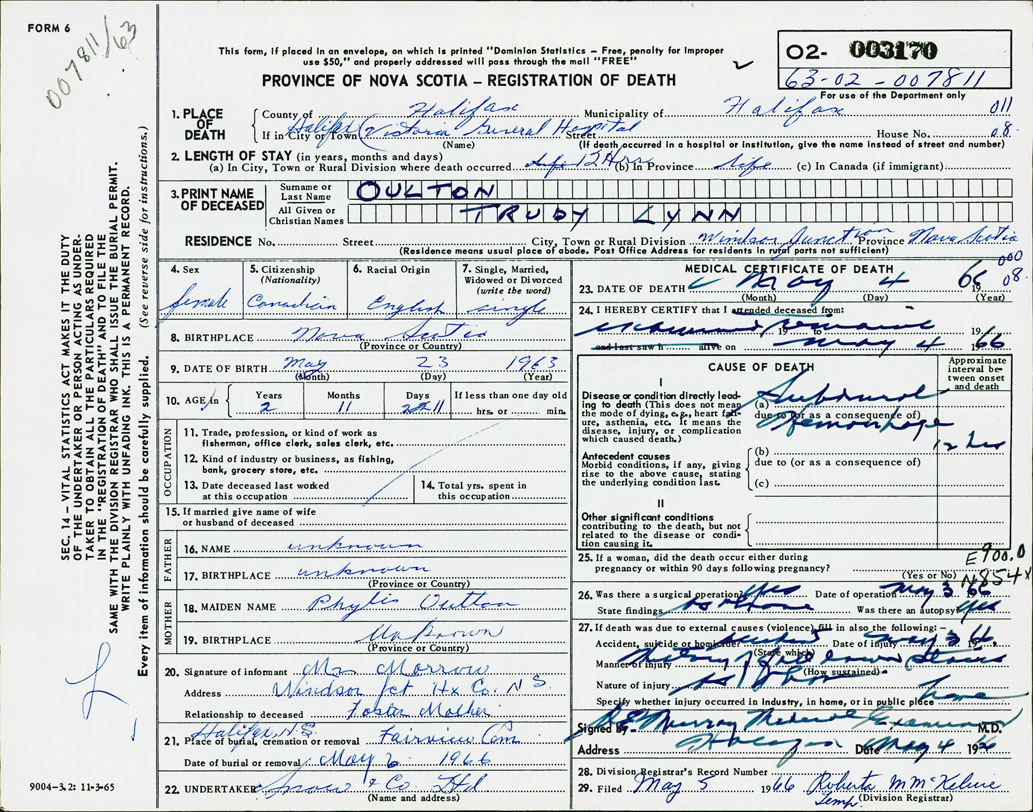 FORM 6
007811/63
This form, if placed in an envelope, on which is printed "Dominion Statistics – Free, penalty for improper
use $50," and properly addressed will pass through the mail "FREE"
PROVINCE OF NOVA SCOTIA – REGISTRATION OF DEATH
02- 003170
63-02-007811
For use of the Department only
1. PLACE OF DEATH
County of Halifax Municipality of Halifax 011
If in City or Town Halifax (Victoria General Hospital Street House No. 08
(Name) (If death occurred in a hospital or institution, give the name instead of street and number)
2. LENGTH OF STAY (in years, months and days)
(a) In City, Town or Rural Division where death occurred 12 Hrs (b) In Province life (c) In Canada (if immigrant)
3. PRINT NAME OF DECEASED
Surname or Last Name OULTON
All Given or Christian Names TRUDY LYNN
RESIDENCE No. Street City, Town or Rural Division Windsor Junction Province Nova Scotia
(Residence means usual place of abode. Post Office Address for residents in rural parts not sufficient)
000
08
4. Sex female
5. Citizenship (Nationality) Canadian
6. Racial Origin English
7. Single, Married, Widowed or Divorced (write the word) single
8. BIRTHPLACE Nova Scotia
(Province or Country)
9. DATE OF BIRTH May 23 1963
(Month) (Day) (Year)
10. AGE in Years 2 Months 11 Days 11 If less than one day old hrs. or min.
OCCUPATION
11. Trade, profession, or kind of work as fisherman, office clerk, sales clerk, etc.
12. Kind of industry or business, as fishing, bank, grocery store, etc.
13. Date deceased last worked at this occupation
14. Total yrs. spent in this occupation
15. If married give name of wife or husband of deceased
FATHER
16. NAME unknown
17. BIRTHPLACE unknown
(Province or Country)
MOTHER
18. MAIDEN NAME Phylis Oulton
19. BIRTHPLACE Unknown
(Province or Country)
20. Signature of informant Mrs Morrow
Address Windsor Jct Hx Co. N S.
Relationship to deceased Foster Mother
Halifax N.S.
21. Place of burial, cremation or removal Fairview Cem
Date of burial or removal May 6 1966
22. UNDERTAKER Snow & Co Ltd
(Name and address)
MEDICAL CERTIFICATE OF DEATH
23. DATE OF DEATH May 4 1966
(Month) (Day) (Year)
24. I HEREBY CERTIFY that I attended deceased from:
examined remains 19 to 19
and last saw h alive on May 4 1966
CAUSE OF DEATH
Approximate interval between onset and death
I
Disease or condition directly leading to death (This does not mean the mode of dying, e.g., heart failure, asthenia, etc. It means the disease, injury, or complication which caused death.)
(a) Subdural
due to (or as a consequence of)
Hemorrhage
12 hrs
Antecedent causes
Morbid conditions, if any, giving rise to the above cause, stating the underlying condition last.
(b)
due to (or as a consequence of)
(c)
II
Other significant conditions contributing to the death, but not related to the disease or condition causing it.
25. If a woman, did the death occur either during pregnancy or within 90 days following pregnancy?
(Yes or No)
E900.0
N854x
26. Was there a surgical operation? Yes Date of operation May 3 66
State findings as above Was there an autopsy? yes
27. If death was due to external causes (violence), fill in also the following: –
Accident, suicide or homicide? accident Date of injury May 3 1966
(State which)
Manner of injury history of fall down stairs
(How sustained)
Nature of injury as above
Specify whether injury occurred in Industry, in home, or in public place home
Signed by R E Murray Medical Examiner M.D.
Address Halifax Date May 4 1966
28. Division Registrar's Record Number
29. Filed May 5 1966 Roberta M McKelvie
Temp. (Division Registrar)
SEC. 14 – VITAL STATISTICS ACT MAKES IT THE DUTY
OF THE UNDERTAKER OR PERSON ACTING AS UNDER-
TAKER TO OBTAIN ALL THE PARTICULARS REQUIRED
IN THE "REGISTRATION OF DEATH" AND TO FILE THE
SAME WITH THE DIVISION REGISTRAR WHO SHALL ISSUE THE BURIAL PERMIT.
WRITE PLAINLY WITH UNFADING INK. THIS IS A PERMANENT RECORD.
Every item of information should be carefully supplied. (See reverse side for instructions.)
9004-3.2: 11-3-65